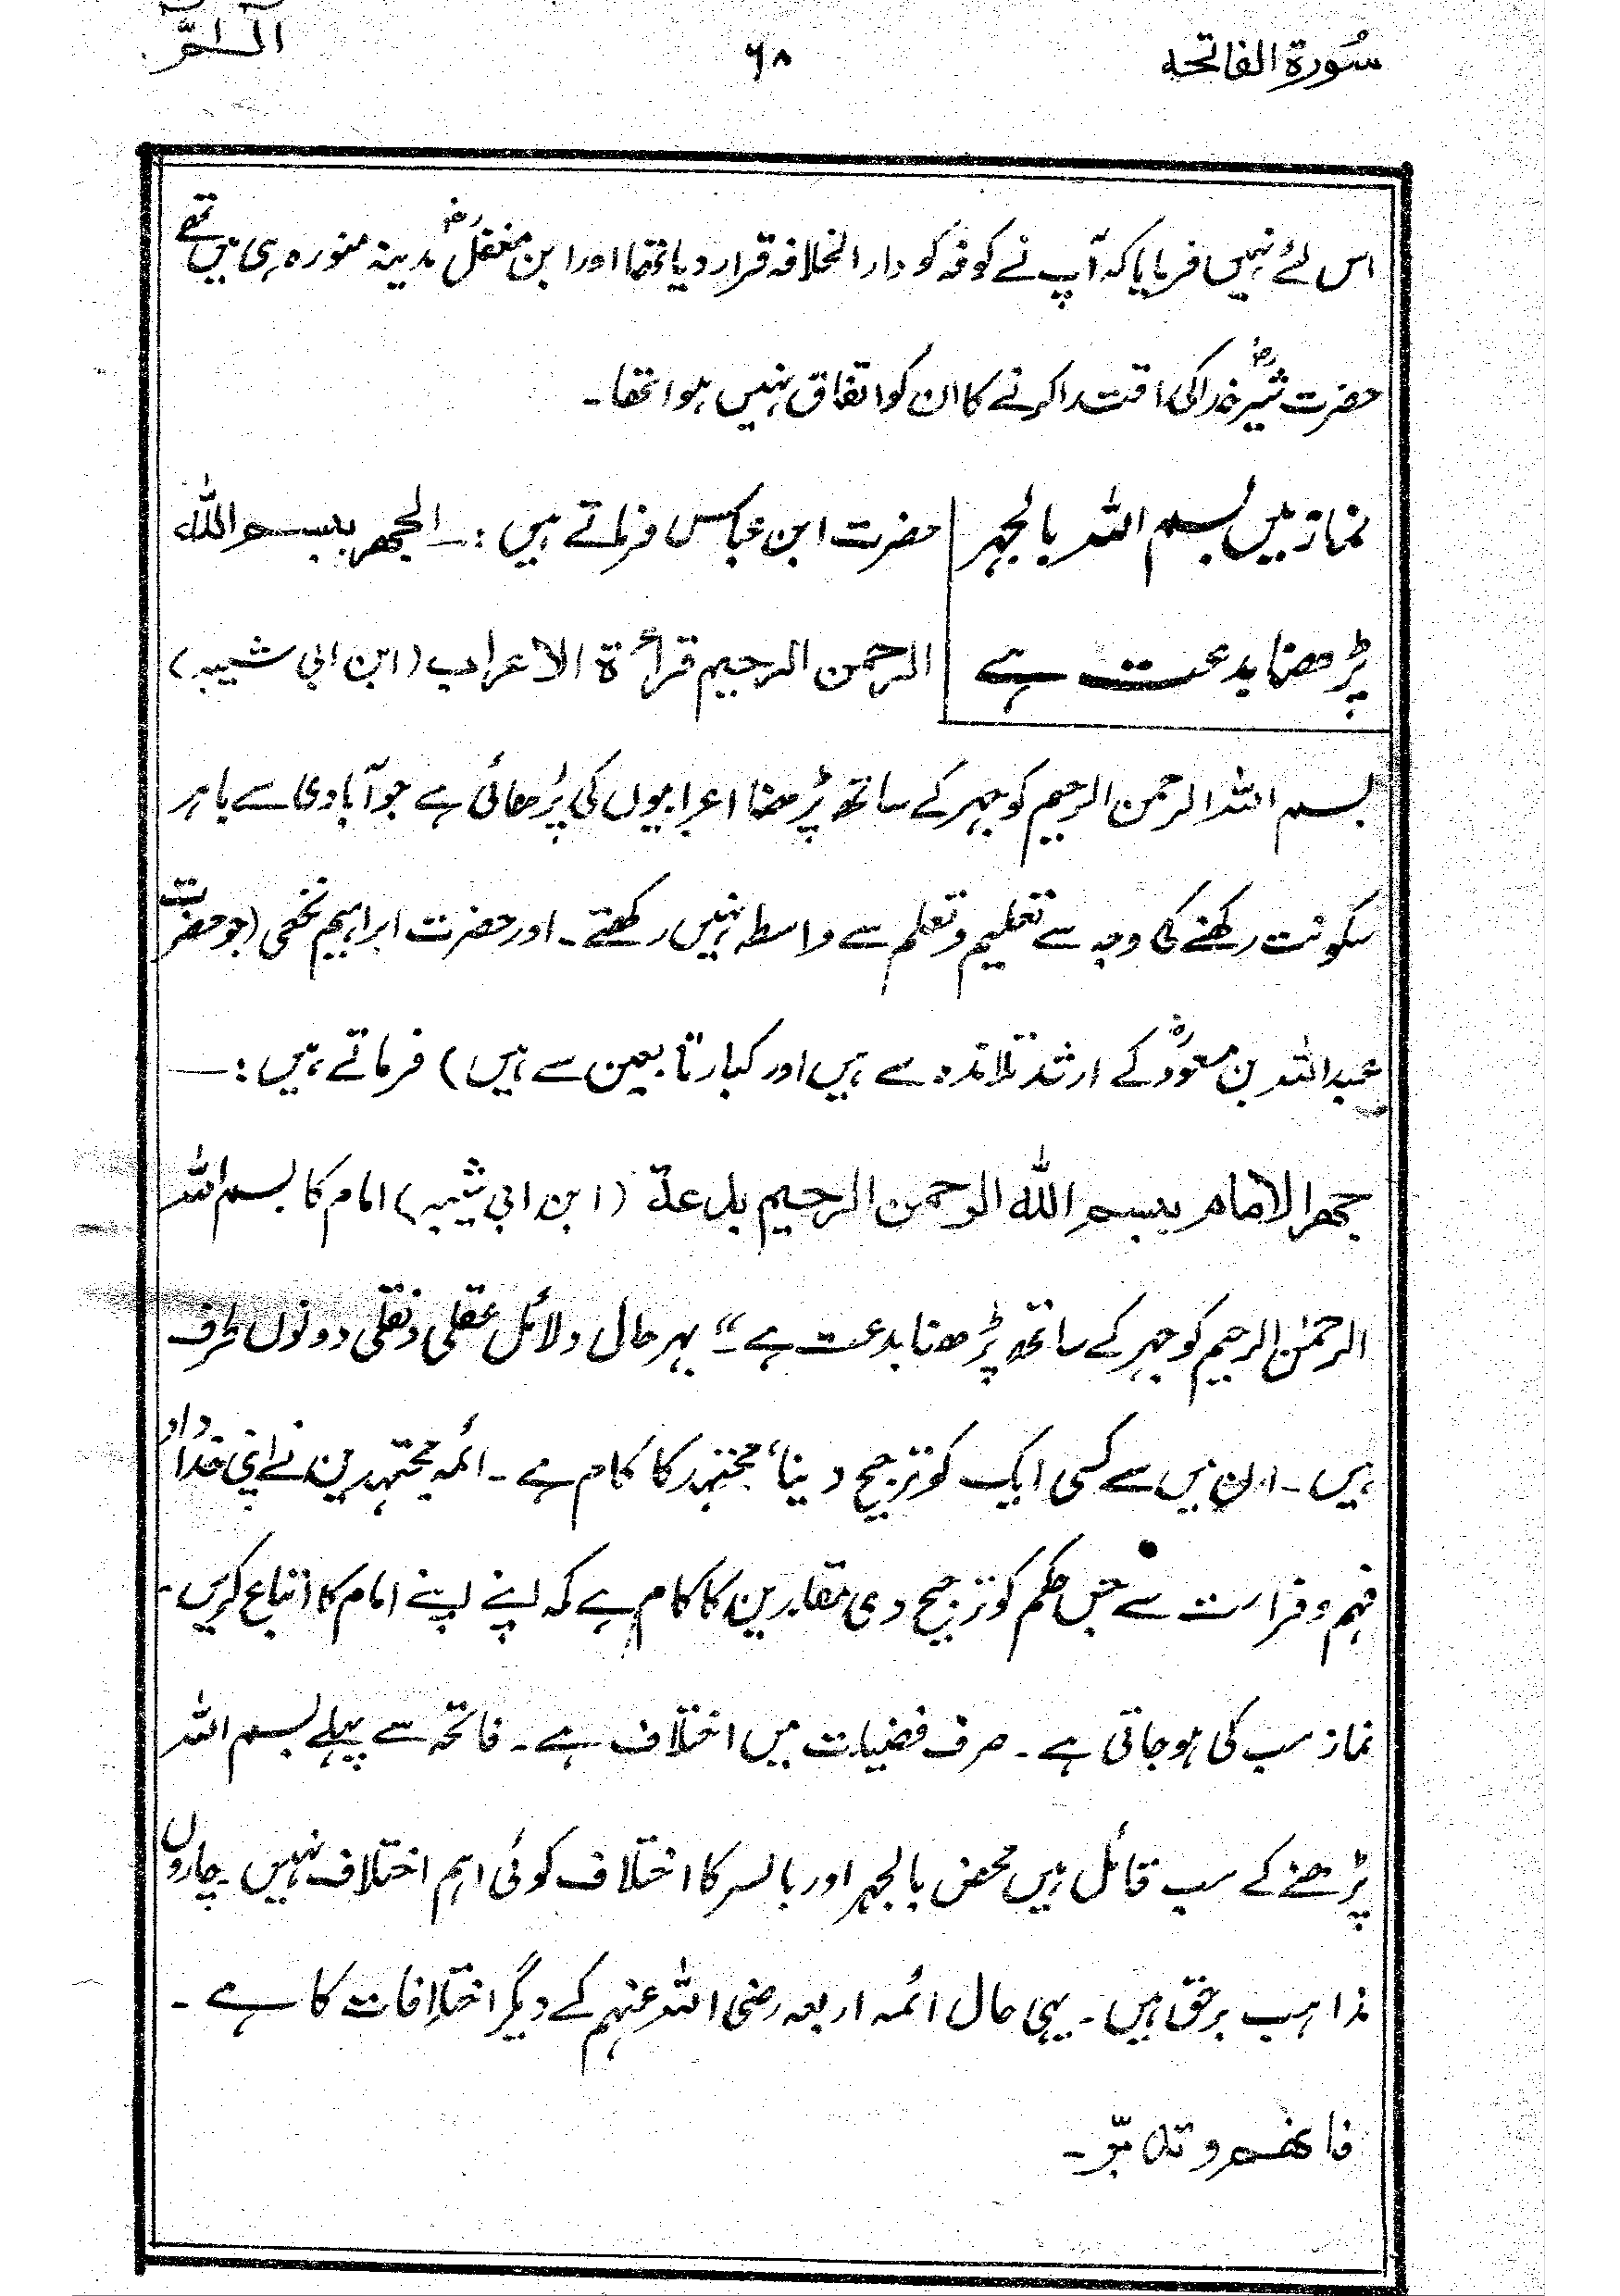 سُورۃ الفاتحہ
۶۸
آلـٓـمّٓ
اس لئے نہیں فرمایا کہ آپ نے کوفہ کو دارالخلافہ قرار دیا تھا اور ابن مغفلؓ مدینہ منورہ ہی میں تھے
حضرت شیرؓ خدا کی اقتدا کرنے کا ان کو اتفاق نہیں ہوا تھا۔
نماز میں بسم اللہ بالجہر
پڑھنا بدعت ہے
حضرت ابن عباس فرماتے ہیں :۔ الجھر ببسم اللہ
الرحمن الرحیم قرأۃ الاعراب (ابن ابی شیبہ)
بسم اللہ الرحمن الرحیم کو جہر کے ساتھ پڑھنا اعرابیوں کی پڑھائی ہے جو آبادی سے باہر
سکونت رکھنے کی وجہ سے تعلیم و تعلم سے واسطہ نہیں رکھتے۔ اور حضرت ابراہیم نخعی (جو حضرت
عبداللہ بن مسعودؓ کے ارشد تلامذہ سے ہیں اور کبار تابعین سے ہیں) فرماتے ہیں :—
جھر الامام ببسم اللہ الرحمن الرحیم بدعۃ (ابن ابی شیبہ) امام کا بسم اللہ
الرحمٰن الرحیم کو جہر کے ساتھ پڑھنا بدعت ہے"۔ بہر حال دلائل عقلی و نقلی دونوں طرف
ہیں۔ ان میں سے کسی ایک کو ترجیح دینا، مجتہد کا کام ہے۔ ائمہ مجتہدین نے اپنی خداداد
فہم و فراست سے جس حکم کو ترجیح دی مقلدین کا کام ہے کہ اپنے اپنے امام کا اتباع کریں۔
نماز سب کی ہو جاتی ہے۔ صرف فضیلت میں اختلاف ہے۔ فاتحہ سے پہلے بسم اللہ
پڑھنے کے سب قائل ہیں محض بالجہر اور بالسر کا اختلاف کوئی اہم اختلاف نہیں۔ چاروں
مذاہب برحق ہیں۔ یہی حال ائمہ اربعہ رضی اللہ عنہم کے دیگر اختلافات کا ہے۔
فافھم وتدبّر۔